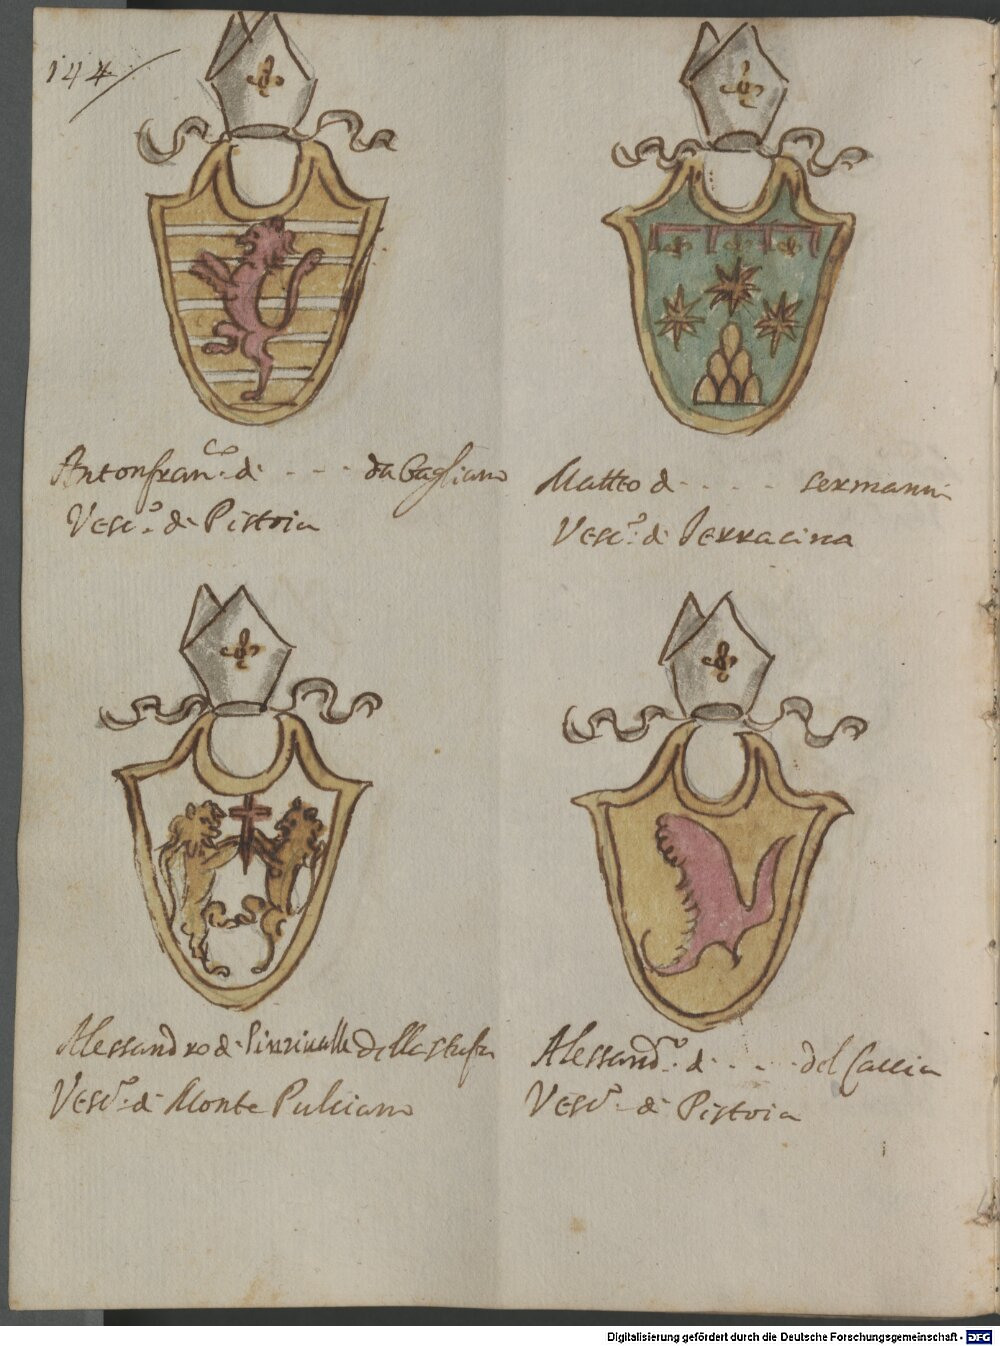 144
Antonfran.co di - - - da Gagliano
Vesc.o di Pistoia
Matteo d - - - - Sermanni
Vesc.o di Terracina
Alessandro di Pirrivalle della Stufa
Vesc.o di Monte Pulciano
Alessand.o d - - - - del Caccia
Vesc.o di Pistoia
Digitalisierung gefördert durch die Deutsche Forschungsgemeinschaft - DFG